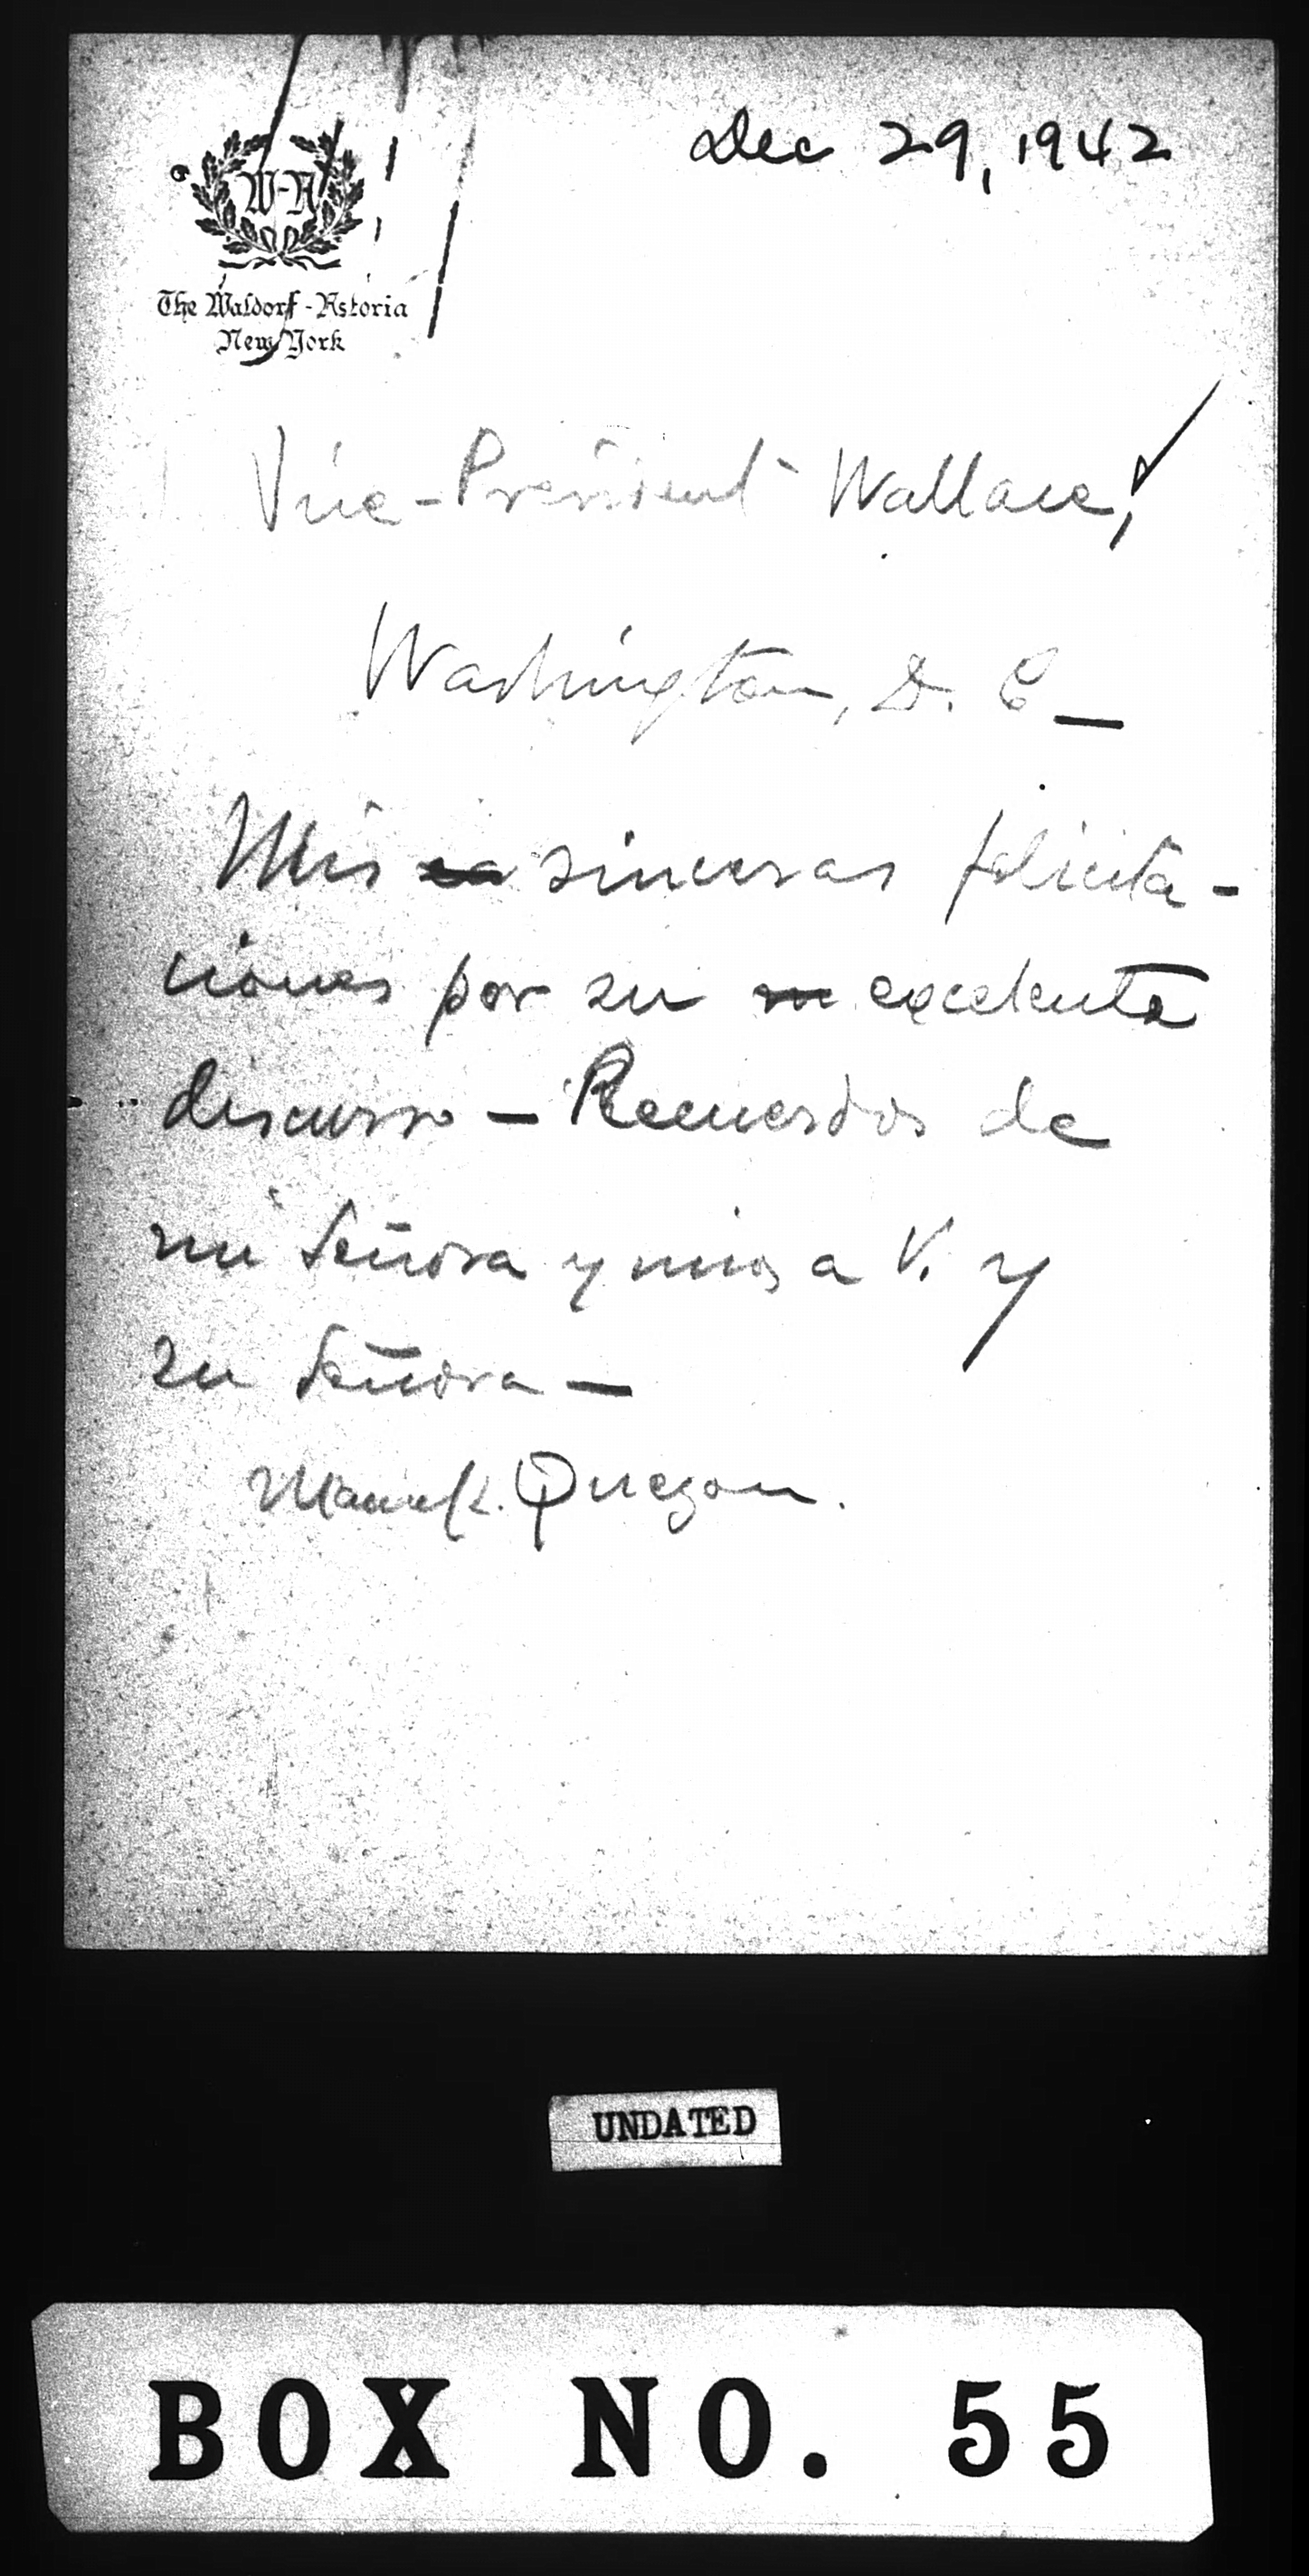 Dec 29, 1942
W-A
The Waldorf-Astoria
New York
Vice-President Wallace,
Washington, D. C—
Mis sinceras felicita-
ciones por su excelente
discurso — Recuerdos de
mi Señora y mios a V. y
su Señora —
Manuel Quezon.
UNDATED
BOX NO. 55